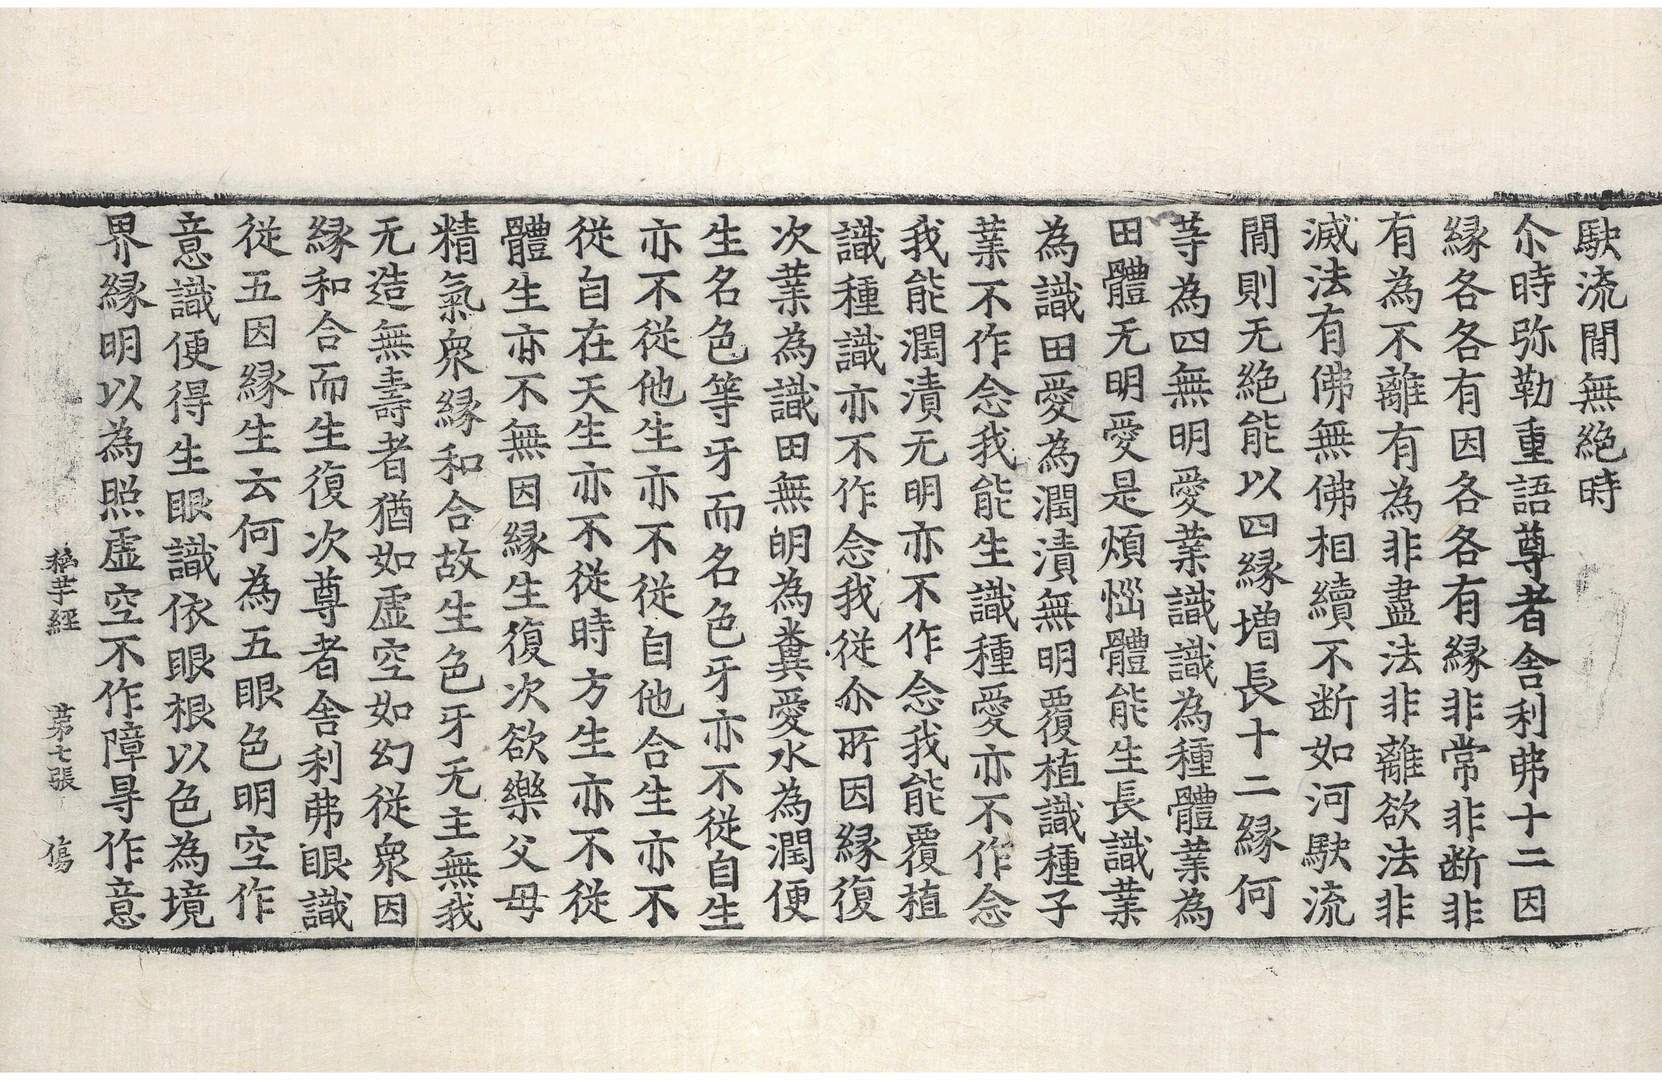 駃流閒無絶時
尒時弥勒重語尊者舎利弗十二因
縁各各有因各各有縁非常非断非
有為不離有為非盡法非離欲法非
滅法有佛無佛相續不断如河駃流
閒則无絶能以四縁增長十二縁何
䓁為四無明愛業識識為種體業為
田體无明愛是煩惱體能生長識業
為識田愛為潤漬無明覆植識種子
業不作念我能生識種愛亦不作念
我能潤漬无明亦不作念我能覆植
識種識亦不作念我従尒所因縁復
次業為識田無明為糞愛水為潤便
生名色等牙而名色牙亦不従自生
亦不従他生亦不従自他合生亦不
従自在天生亦不従時方生亦不従
體生亦不無因縁生復次欲樂父母
精氣衆縁和合故生色牙无主無我
无造無壽者猶如虚空如幻従衆因
縁和合而生復次尊者舎利弗眼識
従五因縁生云何為五眼色明空作
意識便得生眼識依眼根以色為境
界縁明以為照虚空不作障㝵作意
稲芉經　第七張　傷